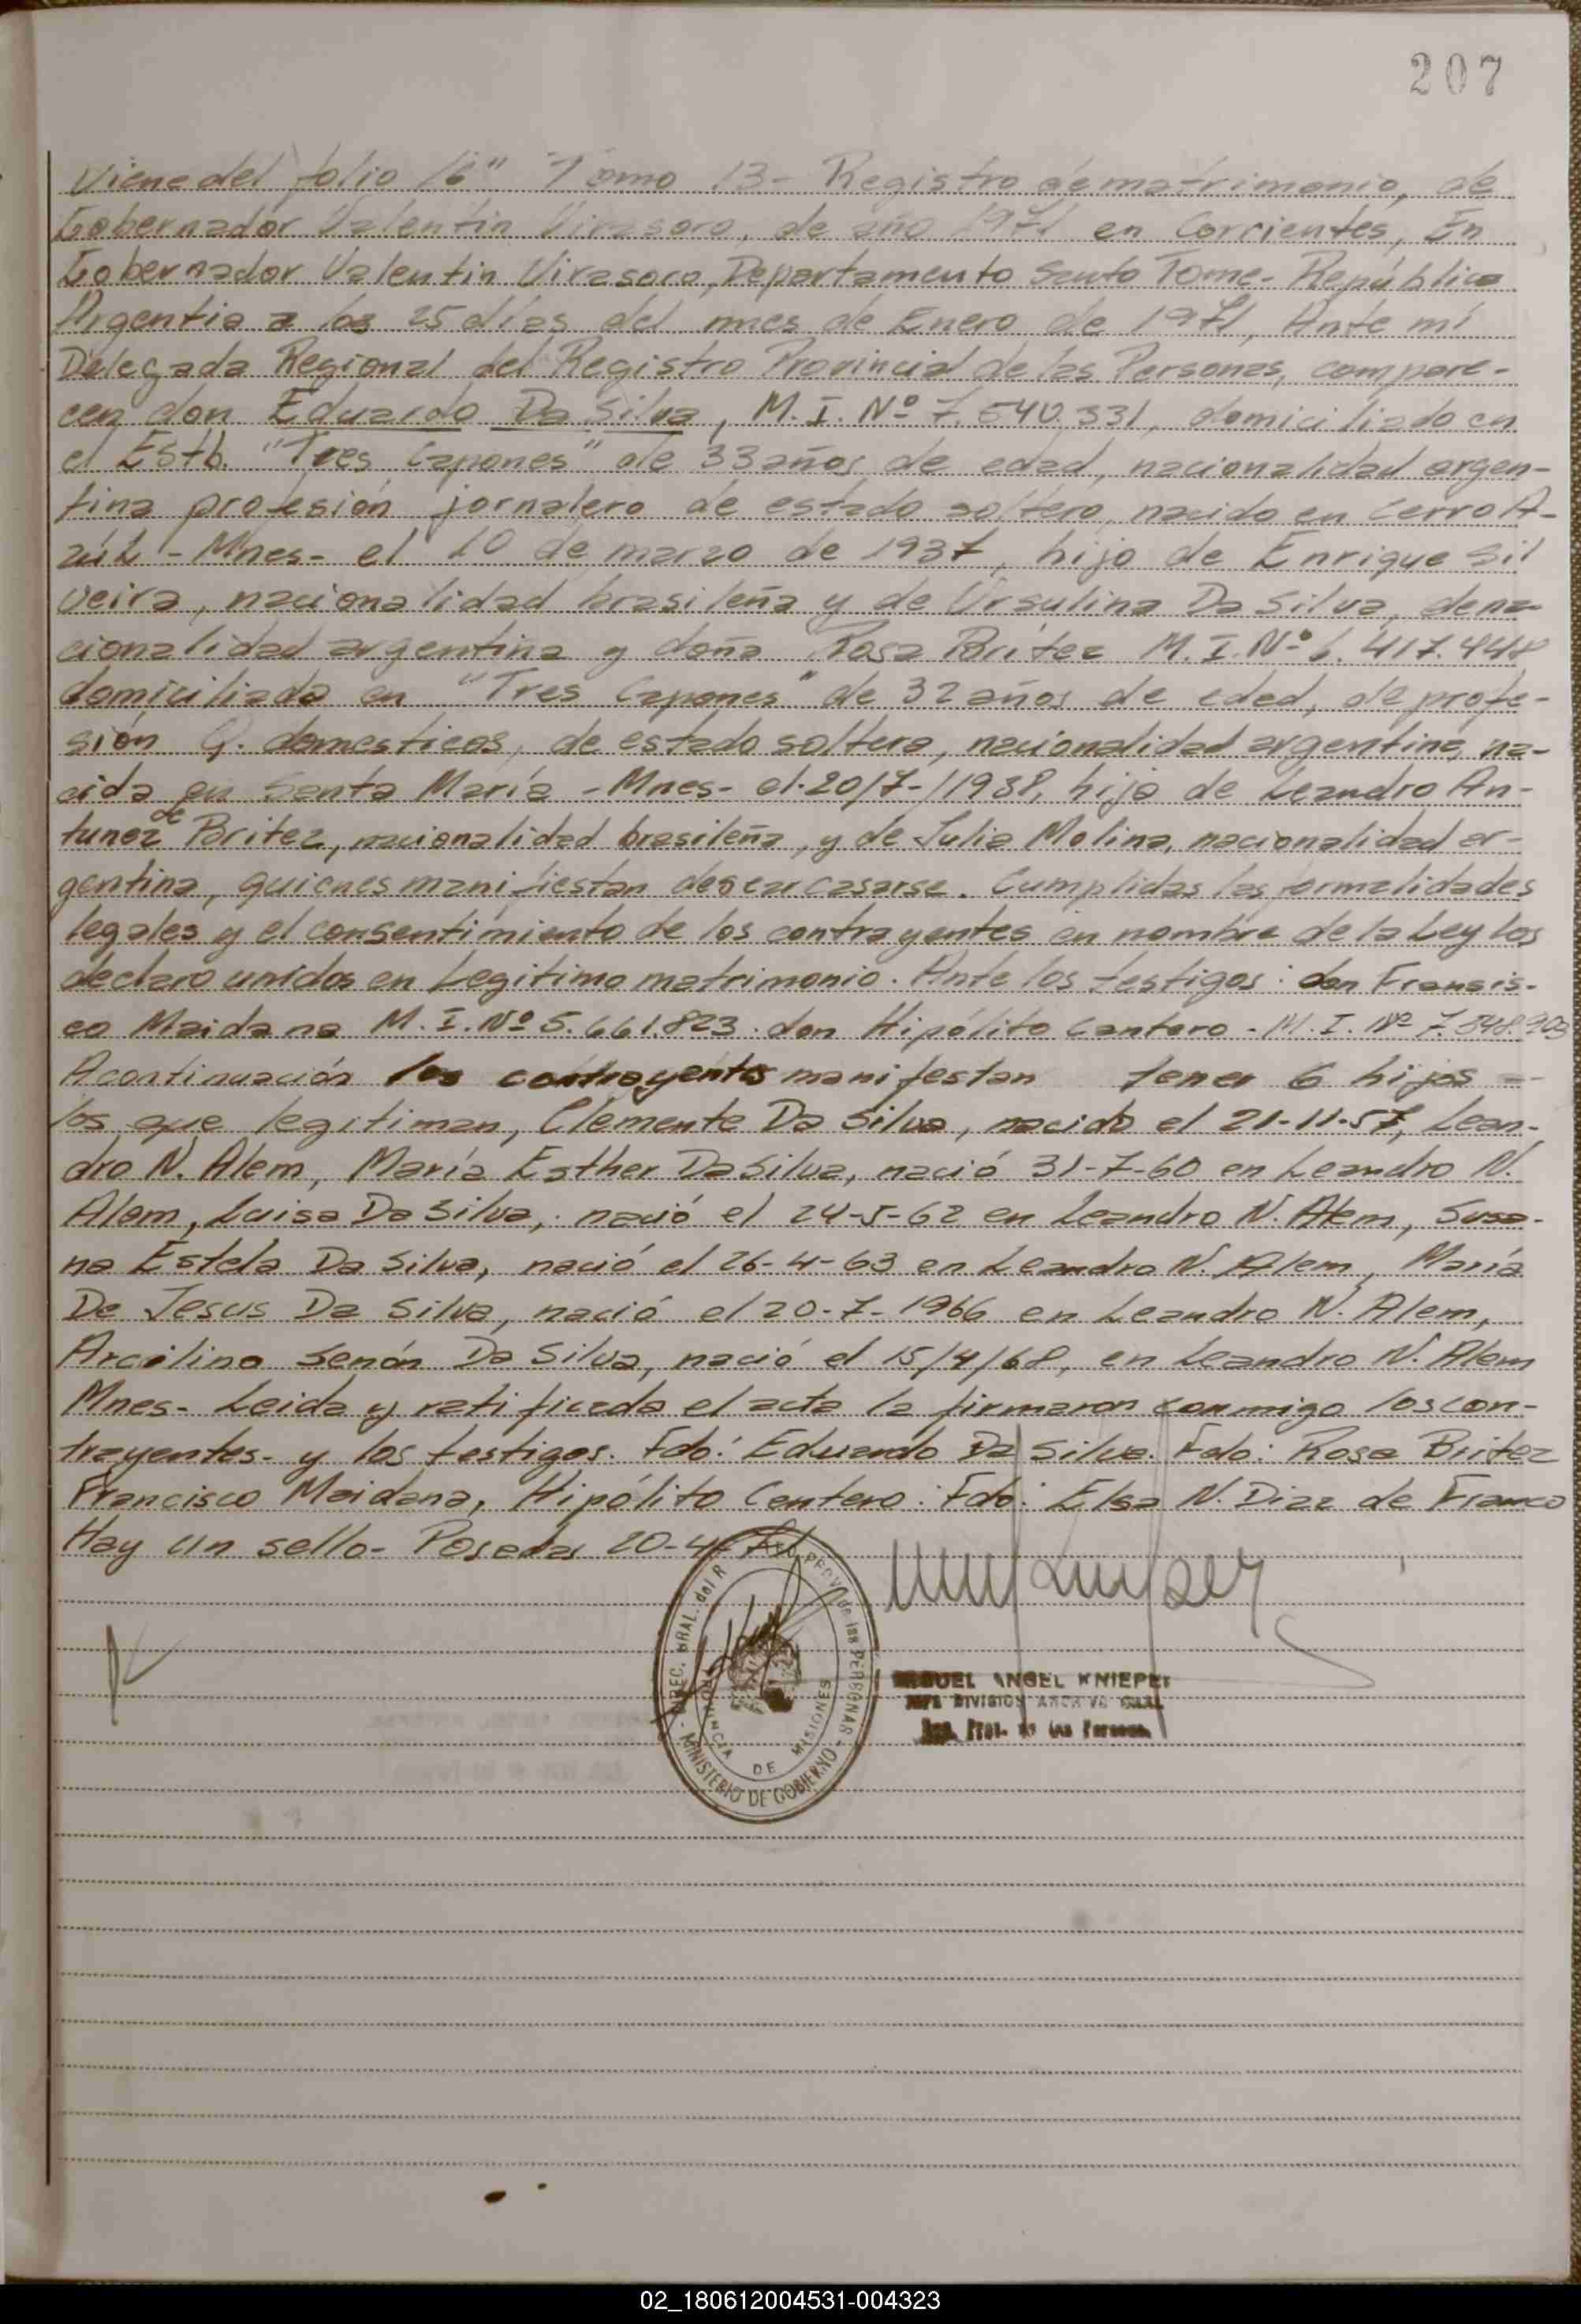 207
Viene del folio 16" Tomo 13- Registro de matrimonio, de
Gobernador Valentin Virasoro, de año 1971 en Corrientes, En
Gobernador Valentin Virasoro, Departamento Santo Tome- República
Argentia a los 25 días del mes de Enero de 1971, Ante mí
Delegada Regional del Registro Provincial de las Personas, compare-
cen don Eduardo Da Silva, M. I. Nº 7.540.331, domiciliado en
el Estb. "Tres Capones" de 33 años de edad, nacionalidad argen-
tina profesión jornalero de estado soltero, nacido en Cerro A-
zúl - Mnes- el 10 de marzo de 1937, hijo de Enrique Sil
veira, nacionalidad brasileña y de Ursulina Da Silva, de na-
cionalidad argentina y doña Rosa Britez M. I. Nº 6.417.448
domiciliada en "Tres Capones" de 32 años de edad, de profe-
sión Q. domesticos, de estado soltera, nacionalidad argentina, na-
cida en Santa María - Mnes- el 20/7-/1938, hija de Leandro An-
tunez de Britez, nacionalidad brasileña, y de Julia Molina, nacionalidad ar-
gentina, quienes manifiestan desear casarse. Cumplidas las formalidades
legales y el consentimiento de los contrayentes en nombre de la Ley los
declaro unidos en Legitimo matrimonio. Ante los testigos: don Francis-
co Maidana M. I. Nº 5.661.823. don Hipólito Cantero - M. I. Nº 7.548.903
A continuación los contrayentes manifestan tener 6 hijos -
los que legitiman, Clemente Da Silva, nacido el 21-11-57, Lean-
dro N. Alem, María Esther Da Silva, nació 31-7-60 en Leandro N.
Alem, Luisa Da Silva, nació el 24-5-62 en Leandro N. Alem, Susa-
na Estela Da Silva, nació el 26-4-63 en Leandro N. Alem, María
De Jesus Da Silva, nació el 20-7-1966 en Leandro N. Alem,
Arcelino Senón Da Silva, nació el 15/4/68, en Leandro N. Alem
Mnes- Leida y ratificada el acta la firmaron conmigo los con-
trayentes- y los testigos. Fdo: Eduardo Da Silva. Fdo: Rosa Britez
Francisco Maidana, Hipólito Cantero. Fdo: Elsa N. Diaz de Franco
Hay un sello- Posadas 20-4-
DIREC. GRAL. del R PROV. de las PERSONAS - MINISTERIO DE GOBIERNO -
PROVINCIA DE MISIONES
MIGUEL ANGEL KNIEPER
JEFE DIVISION ARCHIVO GRAL
Reg. Prov. de las Personas
02_180612004531-004323